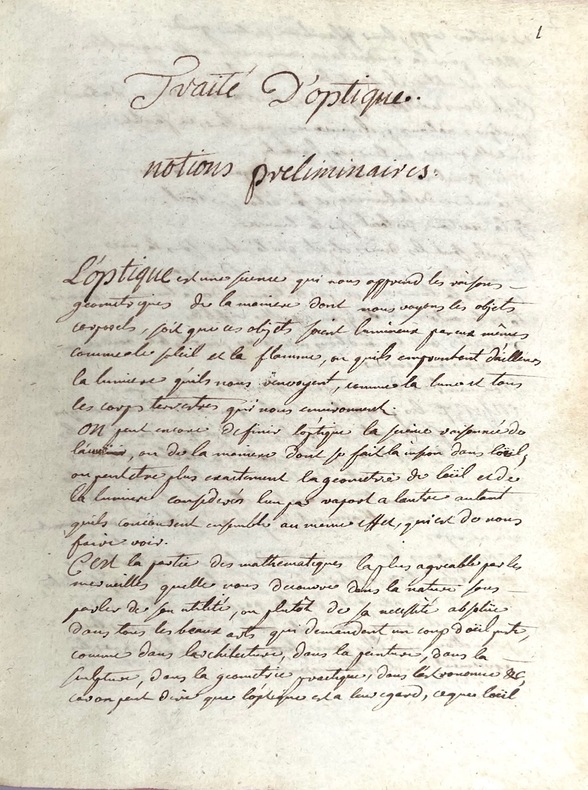 1
Traité D'optique.
notions preliminaires.
L'optique est une science qui nous apprend les raisons
geometriques de la maniere dont nous voyons les objets
corporels, soit que ces objets soient lumineux par eux mêmes
comme le soleil et la flamme, ou qu'ils empruntent d'ailleurs
la lumiere qu'ils nous renvoyent, comme la lune et tous
les corps terrestres qui nous environnent
On peut encore definir l'optique la science raisonnée de
la ou de la maniere dont se fait la dans l'œil,
ou peut etre plus exactement la geometrie de l'œil et de
la lumiere considerés l'un par raport a l'autre autant
qu'ils concourent ensemble au meme effet, qui est de nous
faire voir.
C'est la partie des mathematiques la plus agreable par les
merveilles quelle nous decouvre dans la nature sans
parler de son utilité, ou plutôt de sa necessité absolue
dans tous les beaux arts qui demandent un coup d'œil juste,
comme dans l'architecture, dans la peinture, dans la
sculpture, dans la geometrie pratique, dans l'astronomie &c,
car on peut dire que l'optique est a leur egard, ce que l'œil